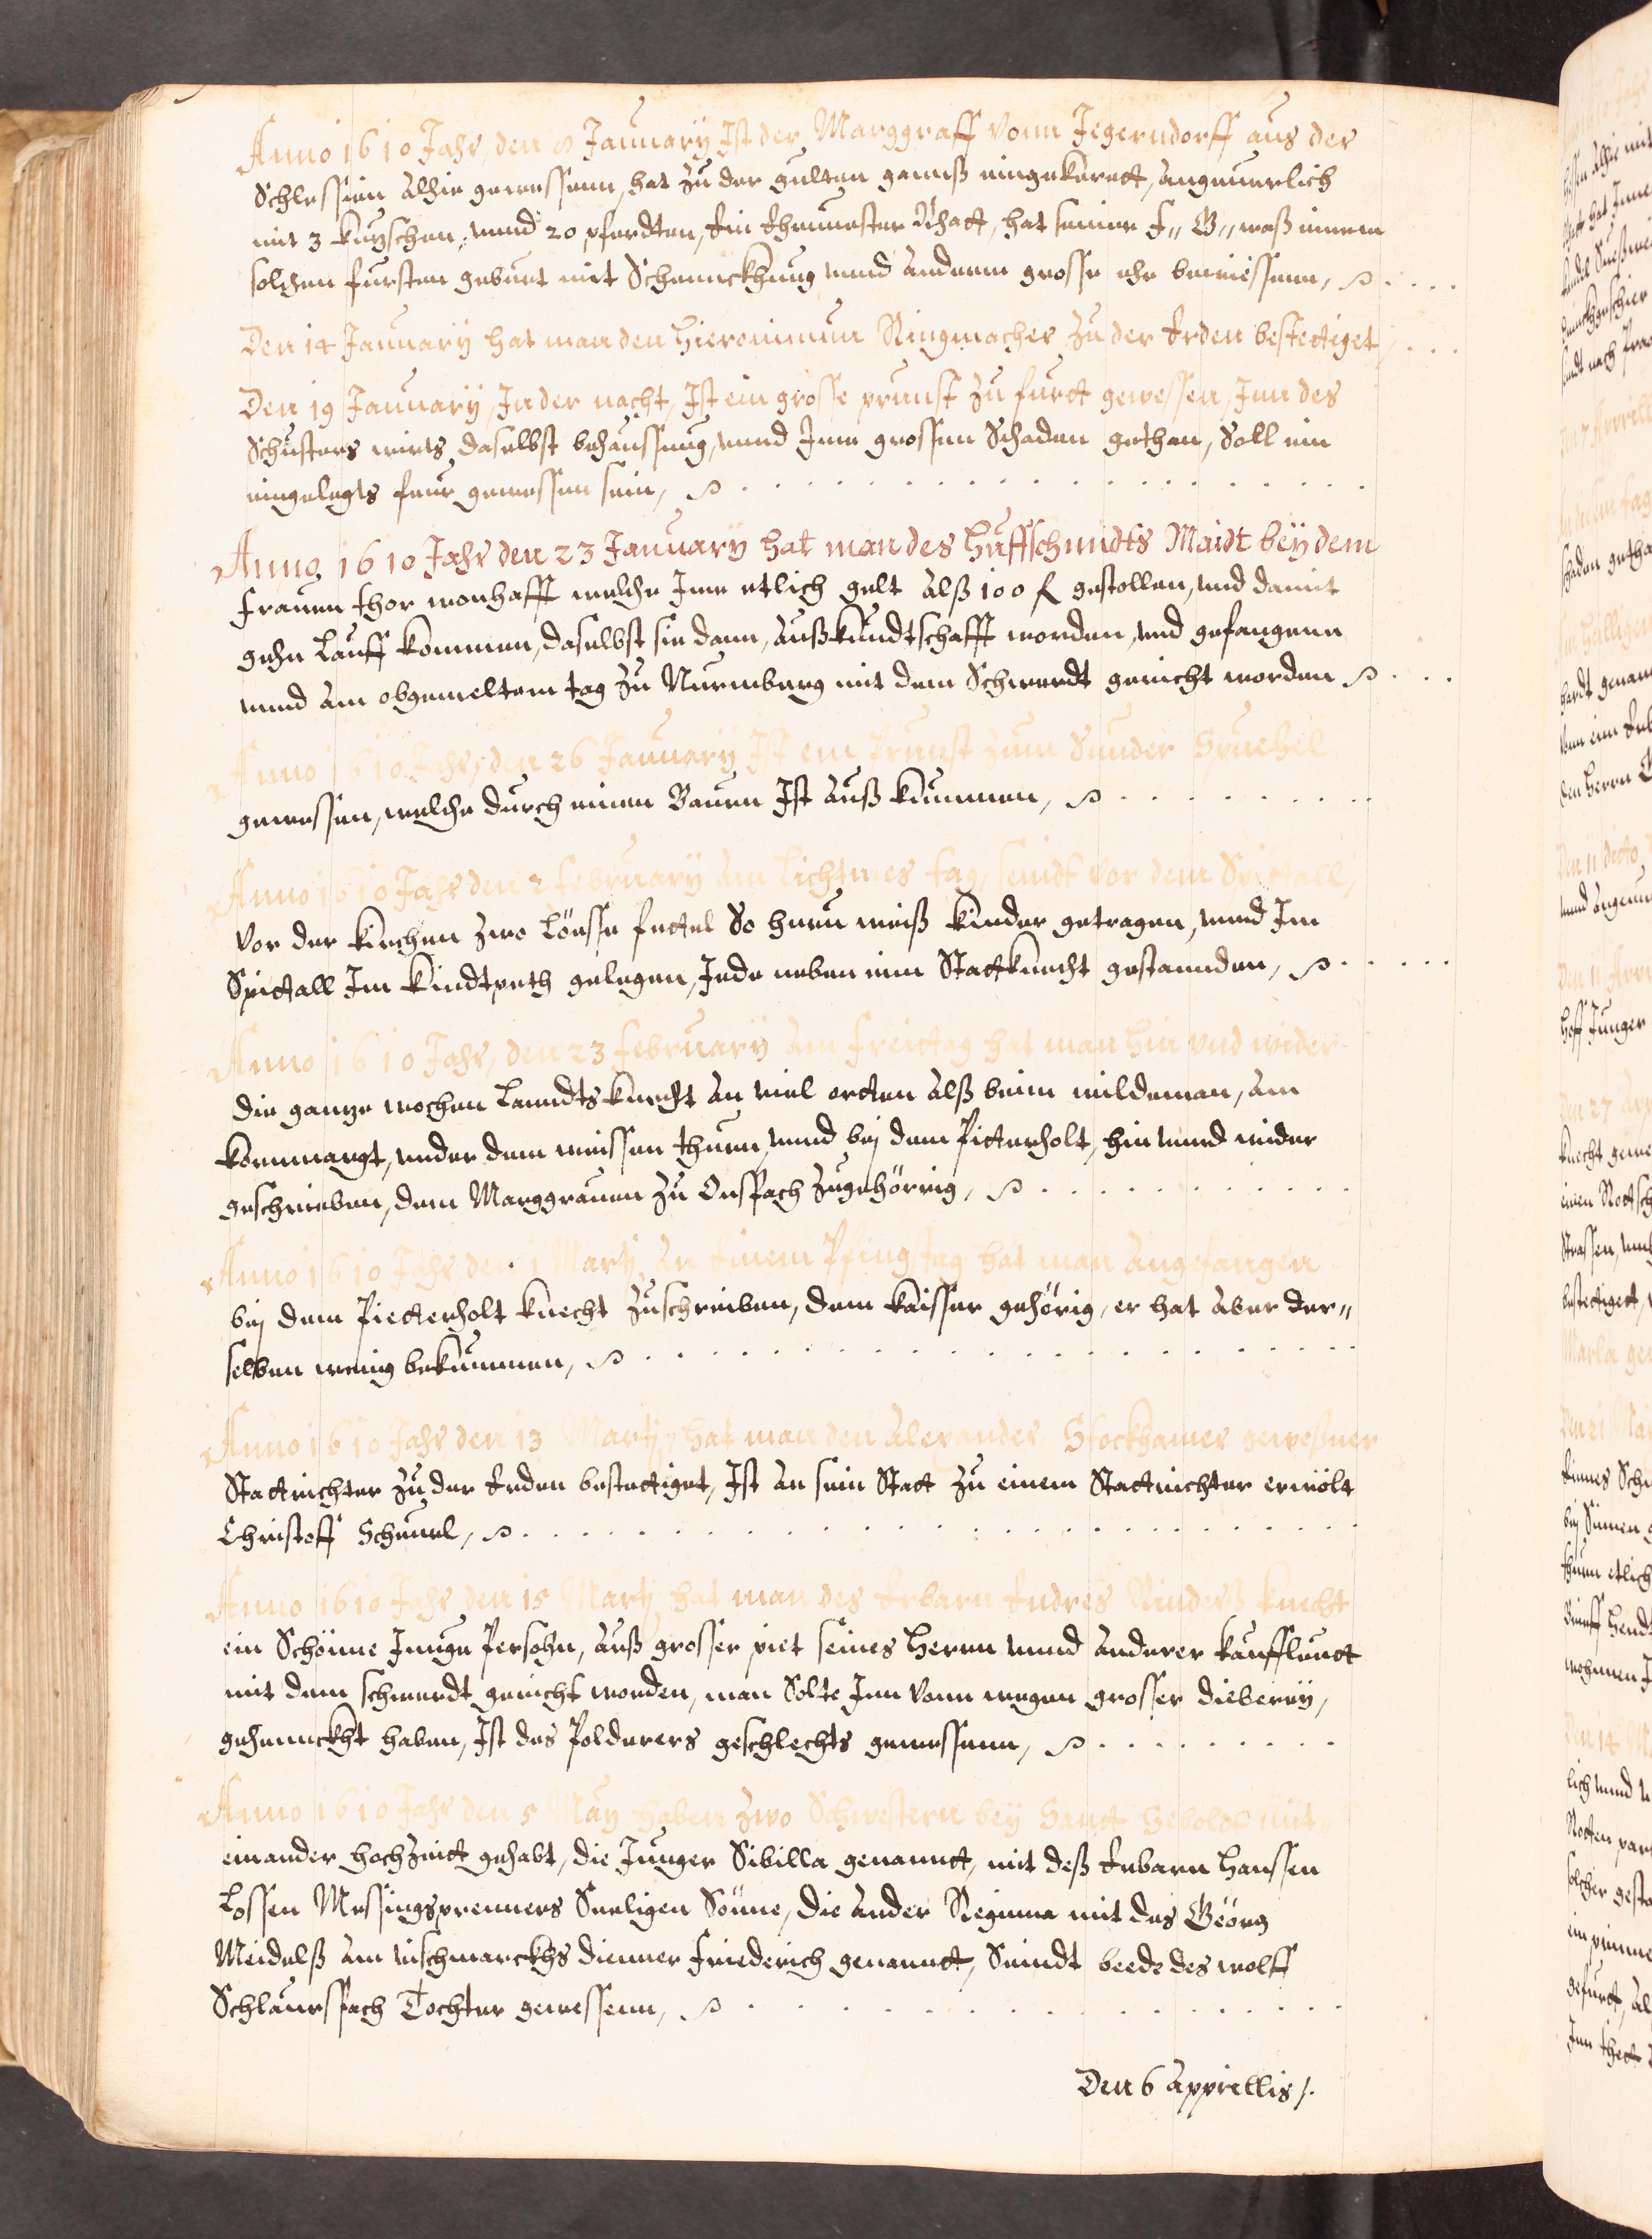 Anno 1610 Jahr, den 8 January Ist der Marggraff vonn Jegerndorff aus der
Schlessien alhie gewessenn, hat zu der gulten ganns eingekerett, angeuerlich
mit 3 kutzschen, vnnd 20 pferdten, Ein Ehrnuester Rhatt, hat seiner F,, G,, waß einem
solchen fursten geburt mit Schennckhung vnnd anderm grosse ehr bewiessenn,
Den 14 January hat man den Hieronimum Ringmacher zu der Erden bestettiget,
Den 19 January, In der nacht, Ist ein grosse prunst zu furtt gewessen, Inn des
Schusters wirts daselbst behaussung, vnnd Inn grossen Schaden gethan, Soll ein
eingelegts feur gewessen sein,
Anno 1610 Jahr den 23 January hat man des Huffschmidts Maidt bey dem
frauen thor wonhafft welche Ime etlich gelt alß 100 fl gestollen, vnd damit
gehn Lauff kommen, daselbst sie dann, außkundtschafft worden, vnd gefangenn
vnnd am obgemeltem tag zu Nurmberg mit dem Schwerdt gericht worden
Anno 1610 Jahr, den 26 January Ist ein Prunst zum Sunder Spuehel
gewessen, welche durch einen Bauern Ist auß kummen,
Anno 1610 Jahr den 2 february am Lichtmes tag, seindt vor dem Spittall,
Vor der kirchen zwo Löesse fettel So huern weiß kinder getragen, vnnd Im
Spittall Im kindtpeth gelegen, Jede neben eim Stattknecht gestannden,
Anno 1610 Jahr, den 23 february am freittag hat man hin vnd wider
die gantze wochen Lanndtsknecht an viel ortten alß beim wildeman, am
kornmargt, vnder dem weissen thurn, vnnd bej dem Pitterholt, hin vnnd wider
geschrieben, dem Marggrauen zu Onspach zugehörrig,
Anno 1610 Jahr den 1 Martj, An Einem Pfingstag hat man angefangen
bej dem Pietterholt knecht zuschreiben, dem kaisser gehörig, er hat aber der,,
selben wenig bekummen,
Anno 1610 Jahr den 13 Martj, hat man den Alexander Stockhamer geweßner
Stattrichter zu der Erden bestettiget, Ist an sein Statt zu einem Stattrichter erwölt
Christoff Scheuerl,
Anno 1610 Jahr den 15 Martj hat man des Erbarn Endres Rinders knecht
ein Schönne Junge Persohn, auß grosser piet seines Herrn vnnd anderer kauffleutt
mit dem schwerdt gericht worden, man Solte Inn vonn wegen grosser dieberey,
gehennckht haben, Ist des Polderers geschlechts gewessenn,
Anno 1610 Jahr den 5 May haben zwo Schwestern bey Sanct Sebolt mit,,
einander hochzeitt gehabt, die Junger Sibilla genanntt, mit deß Erbarn Hanssen
Lossen Messingsprenners Seeligen Sönne, die ander Reginna mit des Geörg
Meidelß am vischmarckhs dienner Friederich genanntt, Seindt beede des wolff
Schlaurspach Tochter gewessenn,
Den 6 Apprillis /.